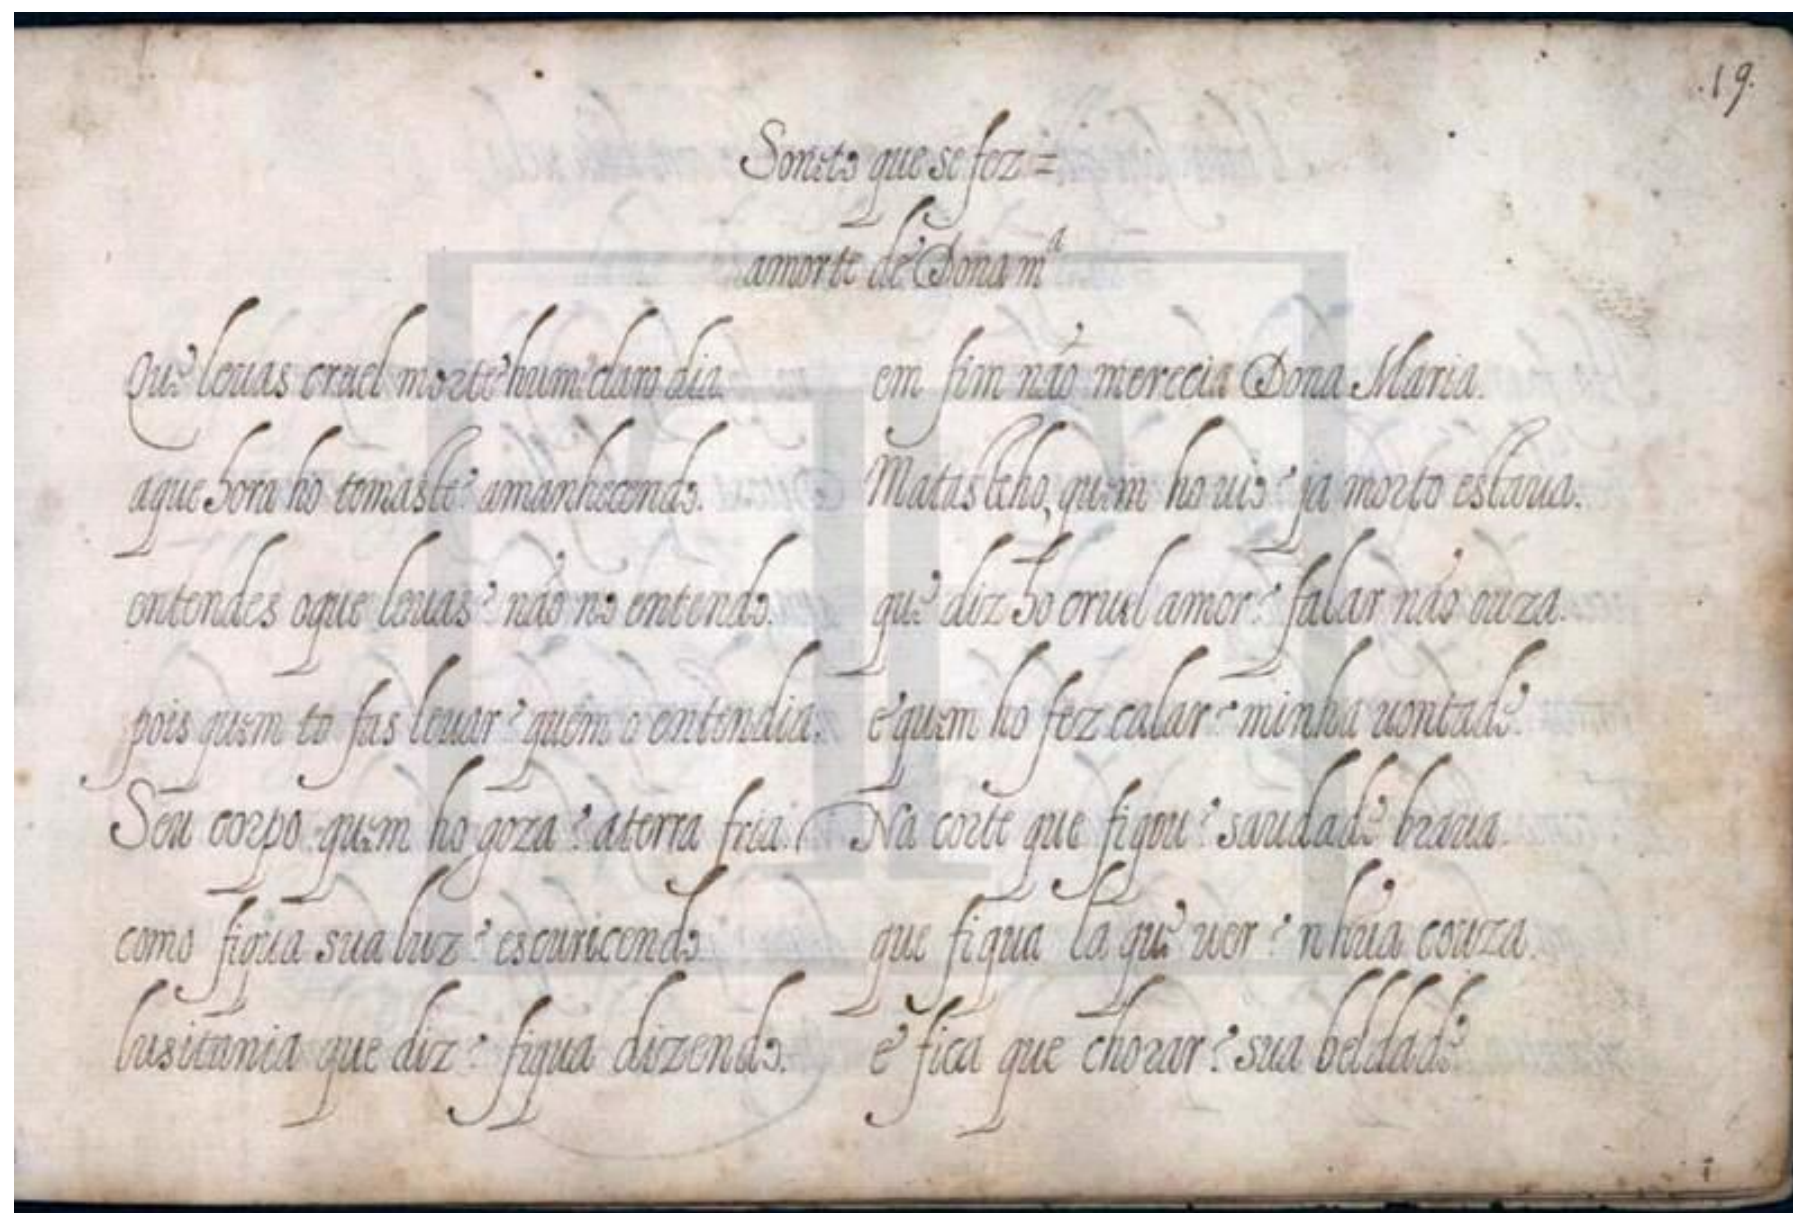 .19.
Soneto que se fez =
amorte de Dona mª
Que leuas cruel morte? hum claro dia.
aque hora ho tomaste? amanhecendo.
entendes oque leuas? não no entendo.
pois quem to fas leuar? quem o entendia.
Seu corpo quem ho goza? aterra fria.
como fiqua sua luz? escurecendo
lusitania que diz? fiqua dizendo.
em fim não merecia Dona Maria.
Matasteho, quem ho uio? ja morto estaua.
que diz ho cruel amor? falar não ouza.
e quem ho fez calar? minha uontade.
Na corte que fiqou? saudade braua.
que fiqua la que uer? nhũa couza.
e fica que chorar? sua beldade.